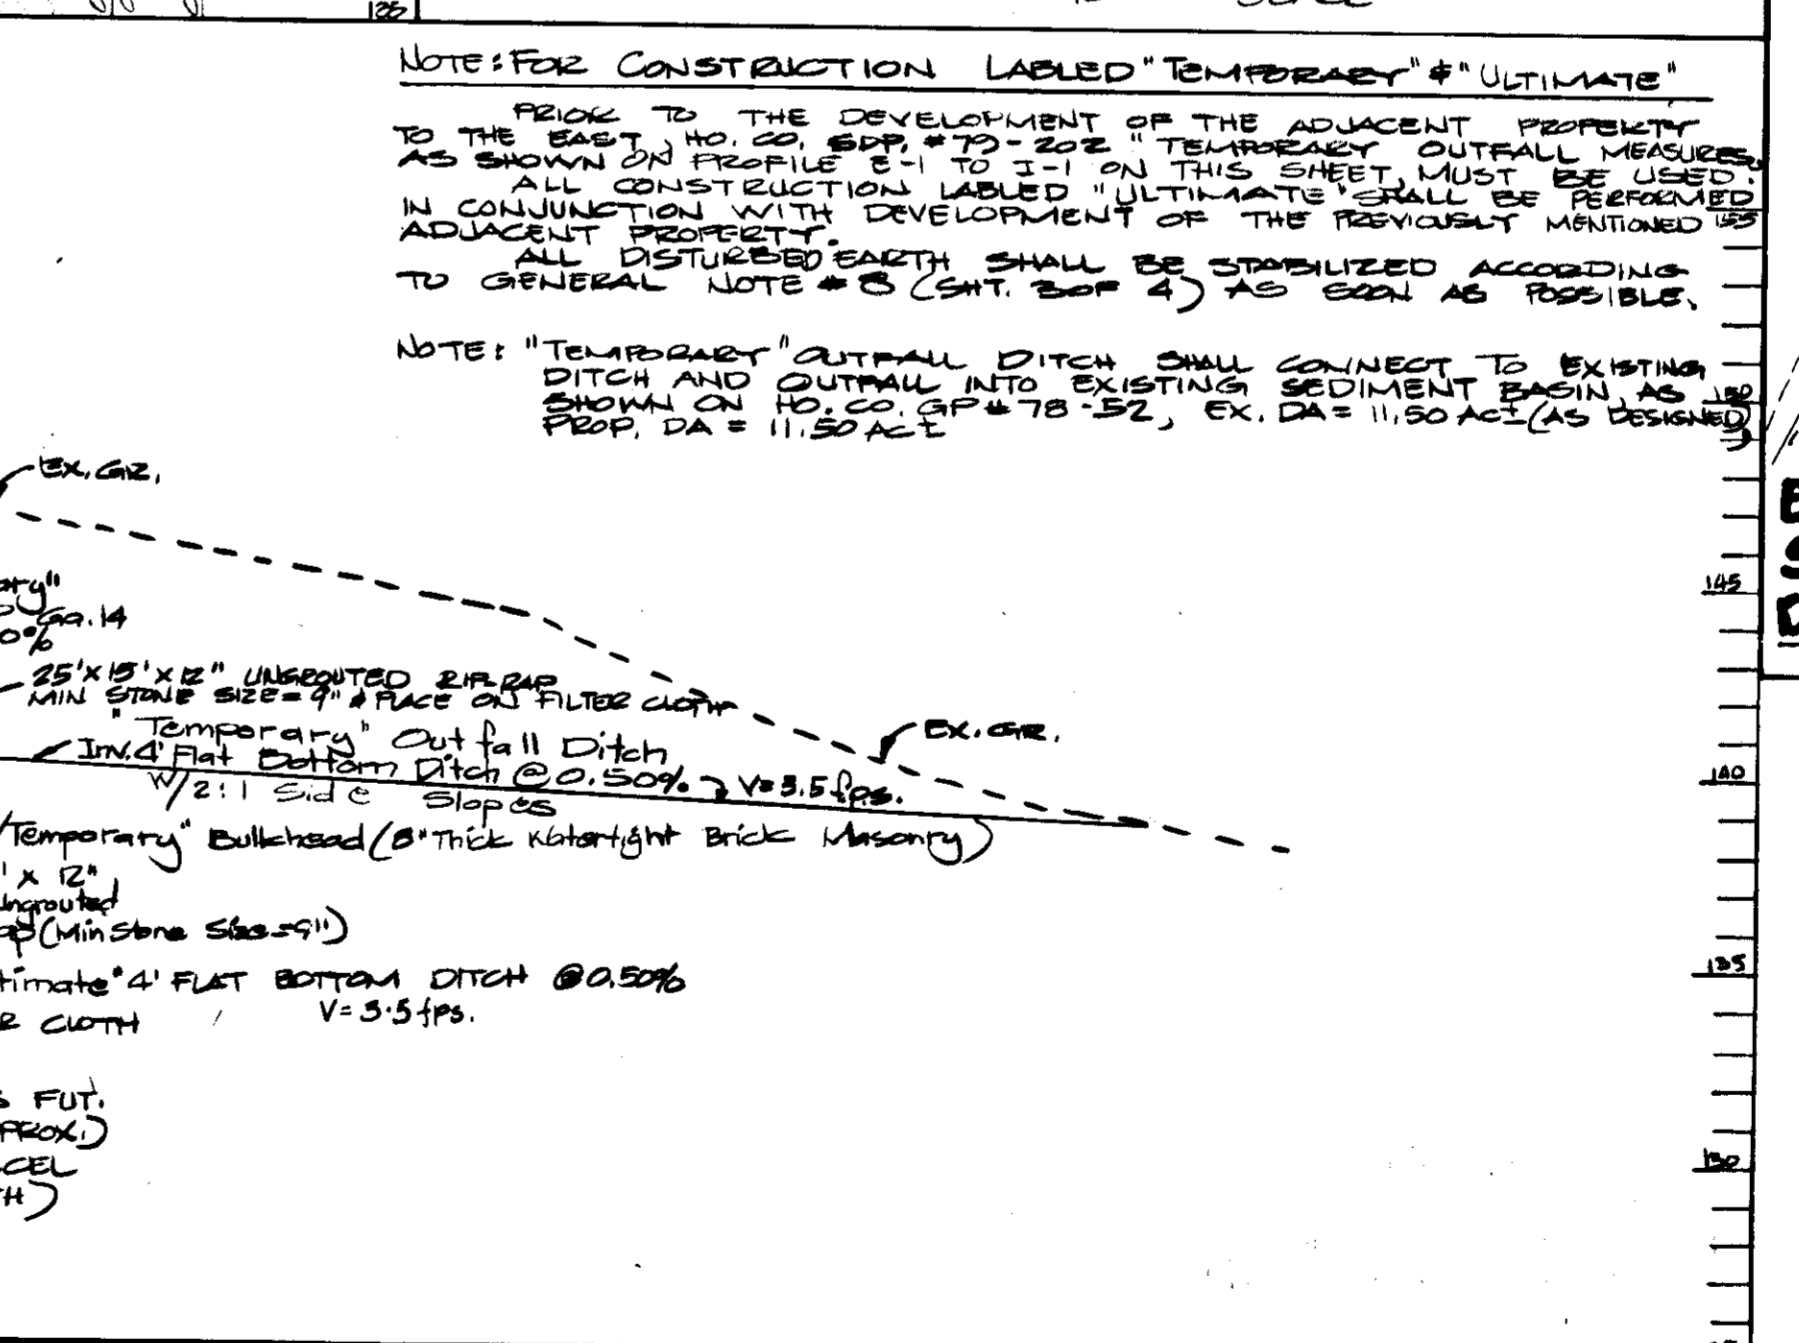 NOTE: FOR CONSTRUCTION LABLED "TEMPORARY" & "ULTIMATE"
PRIOR TO THE DEVELOPMENT OF THE ADJACENT PROPERTY
TO THE EAST, HO. CO. SDP. #79-202 "TEMPORARY OUTFALL MEASURES,
AS SHOWN ON PROFILE E-1 TO I-1 ON THIS SHEET, MUST BE USED.
ALL CONSTRUCTION LABLED "ULTIMATE" SHALL BE PERFORMED
IN CONJUNCTION WITH DEVELOPMENT OF THE PREVIOUSLY MENTIONED
155
ADJACENT PROPERTY.
ALL DISTURBED EARTH SHALL BE STABILIZED ACCORDING
TO GENERAL NOTE #8 (SHT. 3 OF 4) AS SOON AS POSSIBLE.
NOTE: "TEMPORARY" OUTFALL DITCH SHALL CONNECT TO EXISTING
DITCH AND OUTFALL INTO EXISTING SEDIMENT BASIN, AS
150
SHOWN ON HO. CO. GP# 78-52, EX. DA = 11.50 AC± (AS DESIGNED)
PROP. DA = 11.50 AC±
EX. GR.
145
Ga. 14
0%
25' x 15' x 12" UNGROUTED RIP-RAP
MIN STONE SIZE = 9" & PLACE ON FILTER CLOTH
"Temporary" Outfall Ditch
EX. GR.
Inv. 4' Flat Bottom Ditch @ 0.50% V= 3.5 fps.
140
W/2:1 Side Slopes
"Temporary" Bulkhead (8" Thick Watertight Brick Masonry)
' x 12"
ngrouted
ap (Min Stone Size = 9")
135
timate" 4' FLAT BOTTOM DITCH @ 0.50%
V= 3.5 fps.
R CLOTH
S FUT.
PROX.)
130
CEL
H)